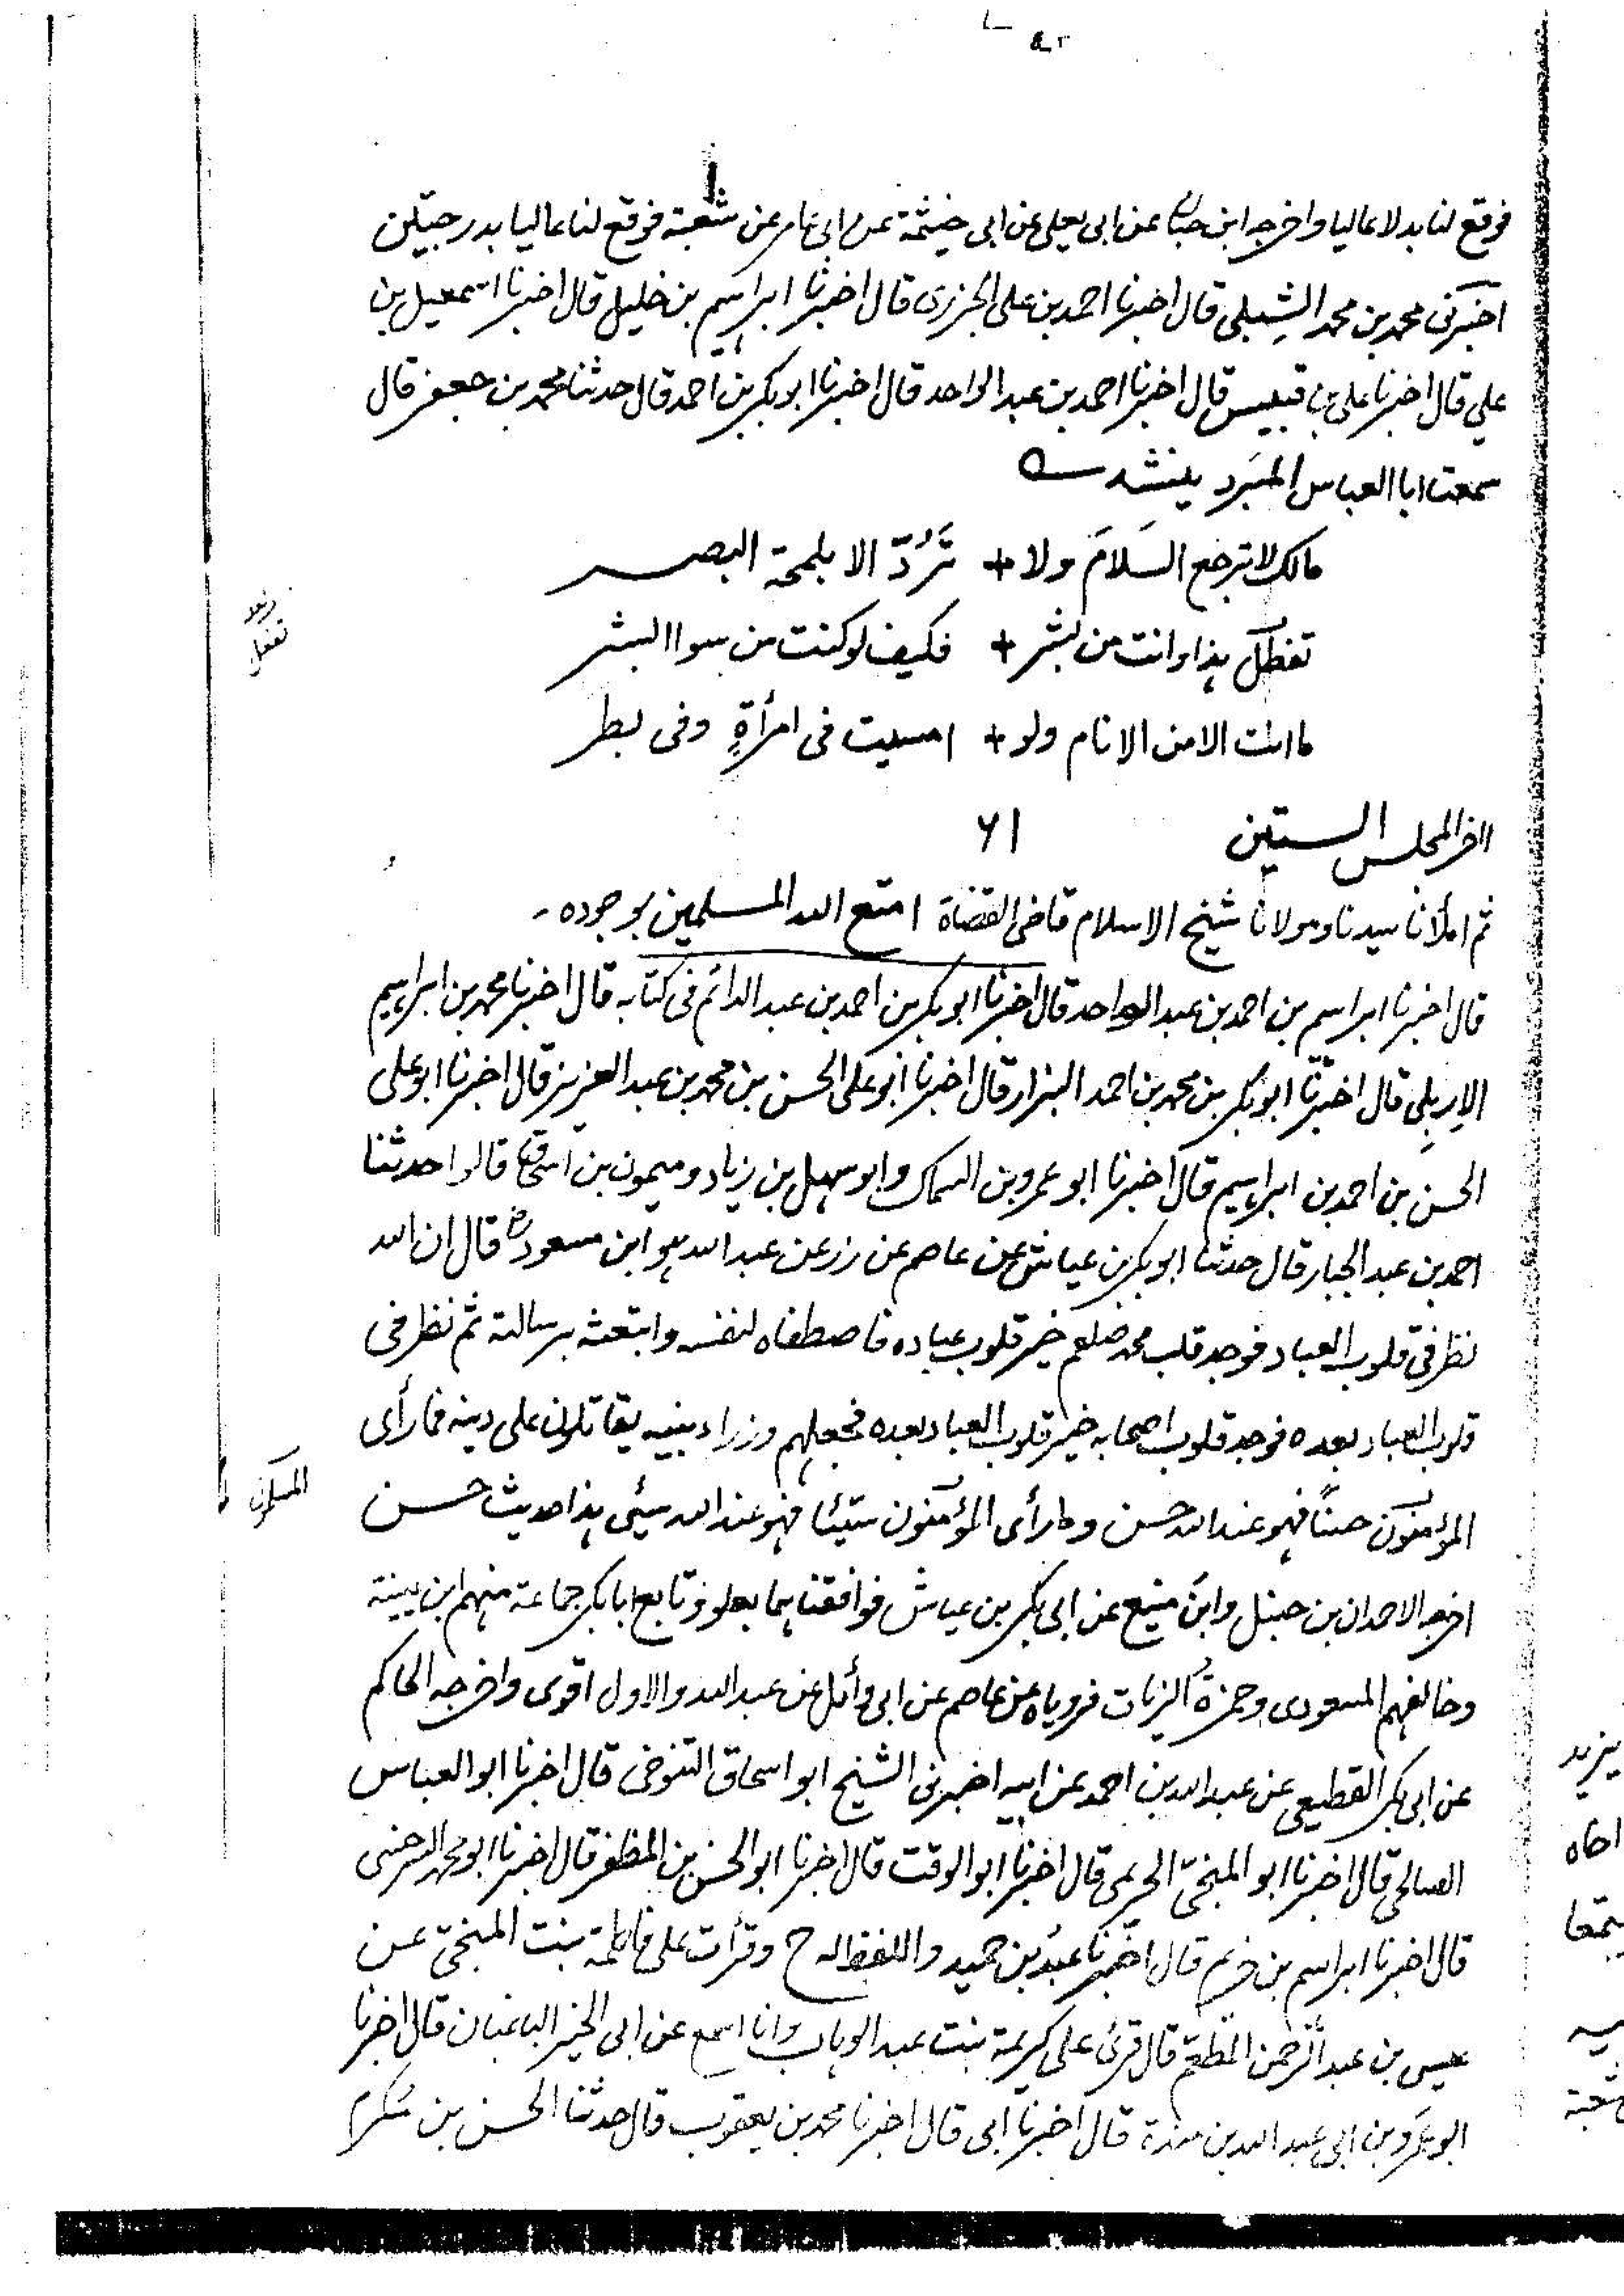 فوقع لنا بدلا عاليا واخرجه ابن حبان عن ابى يعلى عن ابى خيثمة عن ابى عامر عن شعبة فوقع لنا عاليا بدرجتين
اخبرنى محمد بن محمد الشبلى قال اخبرنا احمد بن على الجزرى قال اخبرنا ابراهيم بن خليل قال اخبرنا اسمعيل بن
على قال اخبرنا على بن قبيس قال اخبرنا احمد بن عبد الواحد قال اخبرنا ابو بكر بن احمد قال حدثنا محمد بن جعفر قال
سمعت ابا العباس المبرد ينشد
مالك لا ترجع السَلامَ ولا + تَرُدّ الا بلمحة البصر
هذا وانت من بشر + فكيف لو كنت من سوا البشر
ما انت الا من الانام ولو + امسيت فى امرأةٍ وفى بطر
اخر المجلس الستين ٦١
ثم املأنا سيدنا ومولانا شيخ الاسلام قاضى القضاة امتع الله المسلمين بوجوده
قال اخبرنا ابراهيم بن احمد بن عبد الواحد قال اخبرنا ابو بكر بن احمد بن عبد الدائم فى كتابه قال اخبرنا محمد بن ابراهيم
الاِربِلى قال اخبرتنا ابو بكر بن محمد بن احمد البزار قال اخبرنا ابو على الحسن بن محمد بن عبد العزيز قال اخبرنا ابو على
الحسن بن احمد بن ابراهيم قال اخبرنا ابو عمرو بن السماك وابو سهل بن زياد وميمون بن اسحق قالوا حدثنا
احمد بن عبد الجبار قال حدثنا ابو بكر بن عياش عن عاصم عن زر عن عبد الله هو ابن مسعود رض قال ان الله
نظر فى قلوب العباد فوجد قلب محمد صلعم خير قلوب عباده فاصطفاه لنفسه وابتعثه برسالته ثم نظر فى
قلوب العباد بعده فوجد قلوب اصحابه خير قلوب العباد بعده فجعلهم وزراء نبيه يقاتلون على دينه فما رأى
المؤمنون حسنًا فهو عند الله حسن وما رأى المؤمنون سيئا فهو عند الله سيئى هذا حديث حسن
المسلمون
اخرجه الاحمدان بن حنبل وابن منيع عن ابى بكر بن عياش فوافقناهما بعلو وتابع ابا بكر جماعة منهم ابن عيينة
وخالفهم المسعودى وحمزة الزيات فروياه عن عاصم عن ابى وائل عن عبد الله والاول اقوى واخرجه الحاكم
عن ابى بكر القطيعى عن عبد الله بن احمد عن ابيه اخبرنى الشيخ ابو اسحاق التنوخى قال اخبرنا ابو العباس
الصالحى قال اخبرنا ابو المنجىّ الحريمى قال اخبرنا ابو الوقت قال اخبرنا ابو الحسن بن المظفر قال اخبرنا ابو محمد السرخسى
قال اخبرنا ابراهيم بن خريم قال اخبرنا عبدُ بن حميد واللفظ له ح وقرأت على فاطمة بنت المنجىّ عن
عيسى بن عبد الرحمن المطعم قال قرئ على كريمة بنت عبد الوهاب وانا اسمع عن ابى الخير الباغبان قال اخبرنا
ابو عمرو بن ابى عبد الله بن مندة قال اخبرنا ابى قال اخبرنا محمد بن يعقوب قال حدثنا الحسن بن مكرم
يزيد